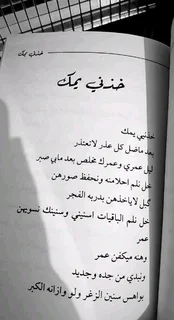 خذني يمك
خذني يمك
خذنيي يمك
بعد ماضل كل عذر لاتعتذر
ليل عمري وعمرك نخلص بعد مابي صبر
خل نلم احلامنه ونحفظ صورهن
گبل لاياخذهن بدربه الفجر
خل نلم الباقيات اسنيني وسنينك نسويهن
عمر
وهنه ميكفن عمر
ونبدي من جده وجديد
بواهس سنين الزغر ولو وازانه الكبر